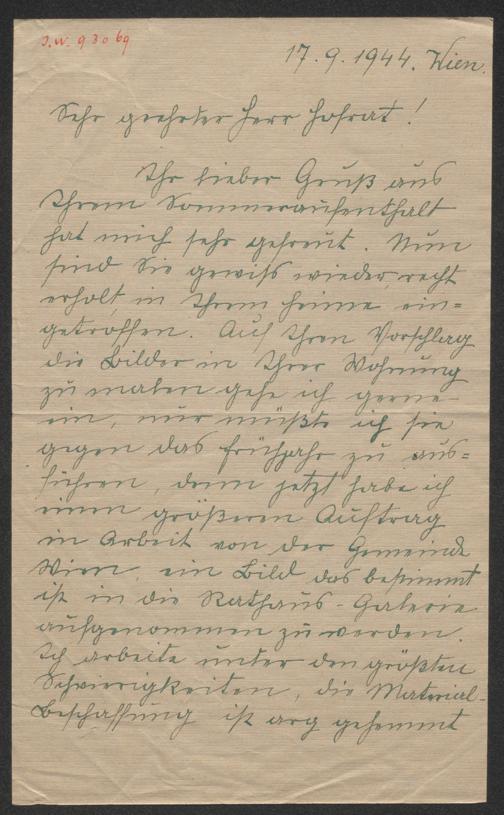 I.N. 93069
17.9.1944. Wien.
Sehr geehrter Herr Hofrat!
Ihr lieber Gruß aus
Ihrem Sommeraufenthalt
hat mich sehr gefreut. Nun
sind Sie gewiß wieder, recht
erholt, in Ihrem Heime ein=
getroffen. Auf Ihren Vorschlag
die Bilder in Ihrer Wohnung
zu malen gehe ich gerne
ein, nur müßte ich sie
gegen das Frühjahr zu aus=
führen, denn jetzt habe ich
einen größeren Auftrag
in Arbeit von der Gemeinde
Wien, ein Bild das bestimmt
ist in die Rathaus-Galerie
aufgenommen zu werden.
Ich arbeite unter den größten
Schwierigkeiten, die Material-
Beschaffung ist arg gehemmt